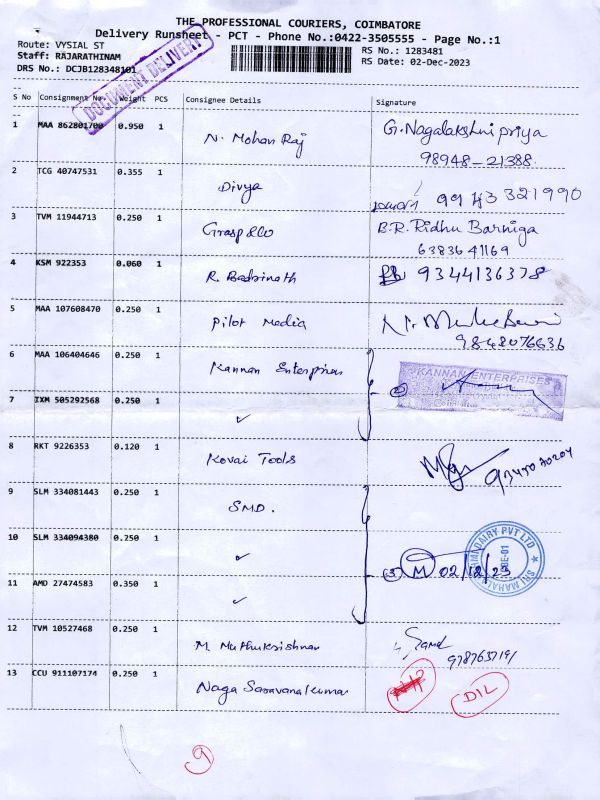 THE PROFESSIONAL COURIERS, COIMBATORE
Delivery Runsheet - PCT - Phone No.:0422-3505555 - Page No.:1
Route: VYSIAL ST
RS No.: 1283481
Staff: RAJARATHINAM
RS Date: 02-Dec-2023
DRS No.: DCJB128348101
DOCUMENT DELIVERY
S No Consignment No. Weight PCS Consignee Details Signature
1 MAA 862801700 0.950 1 N. Mohan Raj G. Nagalakshmi priya
98948-21388
2 TCG 40747531 0.355 1 Divya 9943 321990
3 TVM 11944713 0.250 1 Grasp &Co B.R. Ridhu Barniga
63836 41169
4 KSM 922353 0.060 1 R. Badrinath 9344136378
5 MAA 107608470 0.250 1 Pilot Media
9843076636
6 MAA 106404646 0.250 1 Kannan Enterprises KANNAN ENTERPRISES
7 IXM 505292568 0.250 1 ✓
8 RKT 9226353 0.120 1 Kovai Tools
9 SLM 334081443 0.250 1 SMD.
10 SLM 334094380 0.250 1 ✓
(3) M 02/12/23
SRI MAHA DAIRY PVT LTD
CBE-01
11 AMD 27474583 0.350 1 ✓
12 TVM 10527468 0.250 1 M. Muthukrishnan
9787637191
13 CCU 911107174 0.250 1 Naga Saravanakumar D/L
9